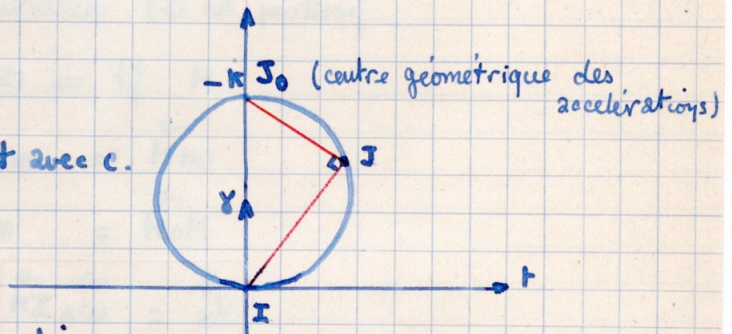 -K J₀ (centre géométrique des
accelérations)
t avec c.
J
γ
t
I